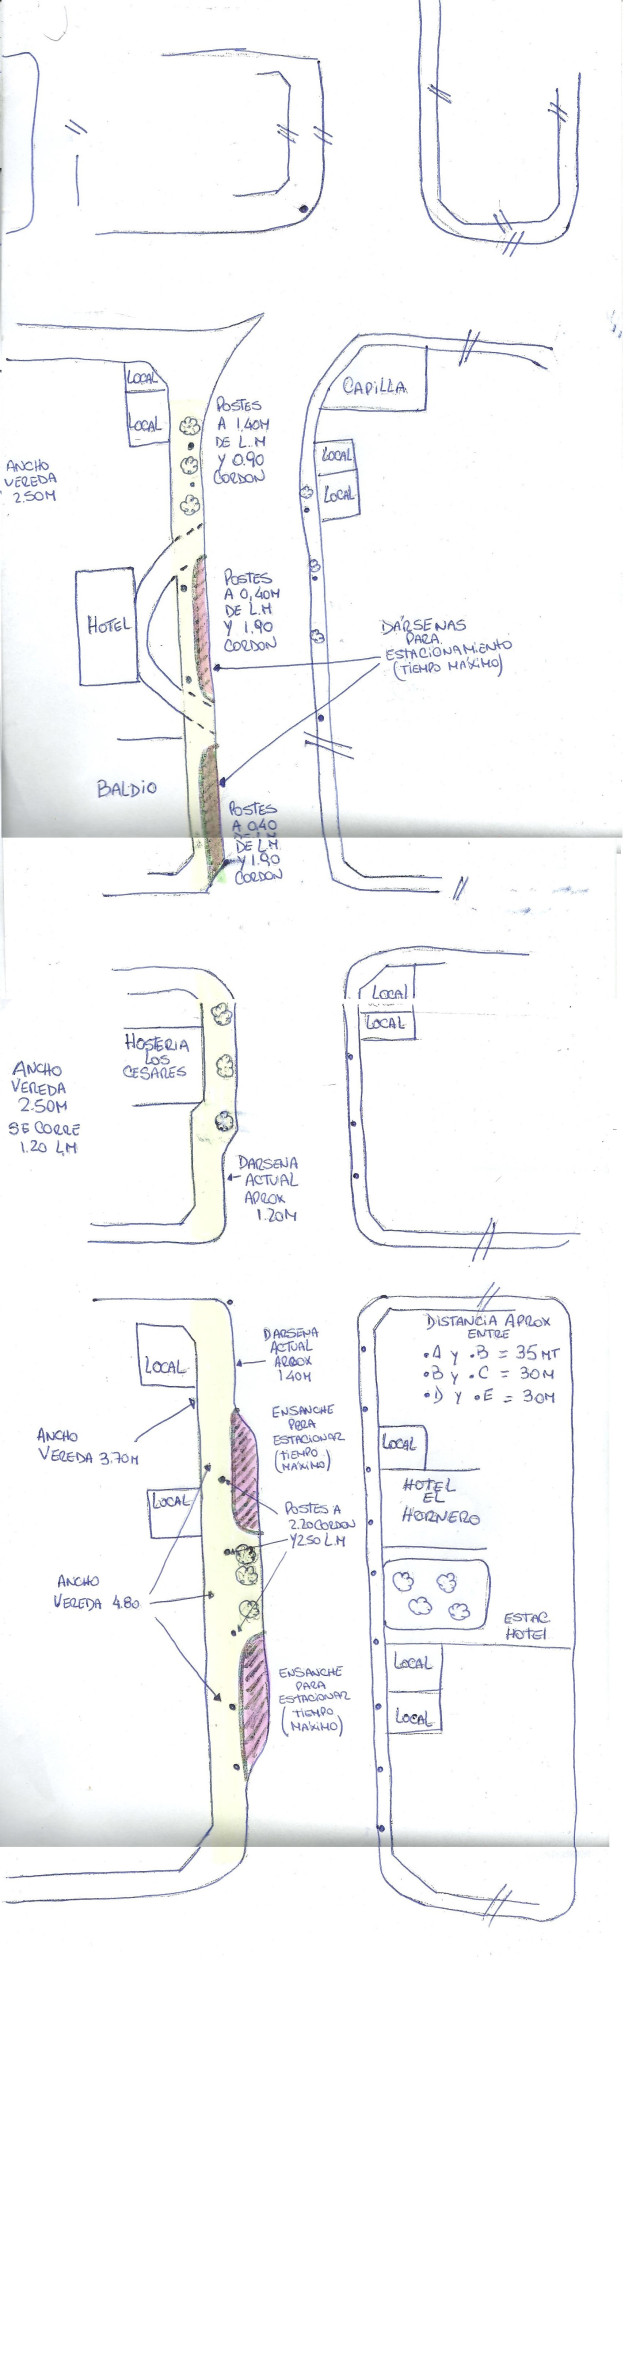 LOCAL
LOCAL
ANCHO
VEREDA
2.50M
POSTES
A 1.40M
DE L.M
Y 0.90
CORDON
CAPILLA
LOCAL
LOCAL
HOTEL
POSTES
A 0,40M
DE L.M
Y 1.90
CORDON
DÁRSENAS
PARA
ESTACIONAMIENTO
(TIEMPO MAXIMO)
BALDIO
POSTES
A 0.40
DE L.M
Y 1.90
CORDON
HOSTERIA
LOS
CESARES
ANCHO
VEREDA
2.50M
SE CORRE
1.20 L.M
LOCAL
LOCAL
DARSENA
ACTUAL
APROX
1.20M
LOCAL
DARSENA
ACTUAL
APROX
1.40M
DISTANCIA APROX
ENTRE
.A y .B = 35 MT
.B y .C = 30M
.D y .E = 30M
ANCHO
VEREDA 3.70M
ENSANCHE
PARA
ESTACIONAR
(TIEMPO
MAXIMO)
LOCAL
HOTEL
EL
HORNERO
LOCAL
POSTES A
2.20 CORDON
Y 2.50 L.M
ANCHO
VEREDA 4.80
ESTAC
HOTEL
ENSANCHE
PARA
ESTACIONAR
(TIEMPO
MAXIMO)
LOCAL
LOCAL